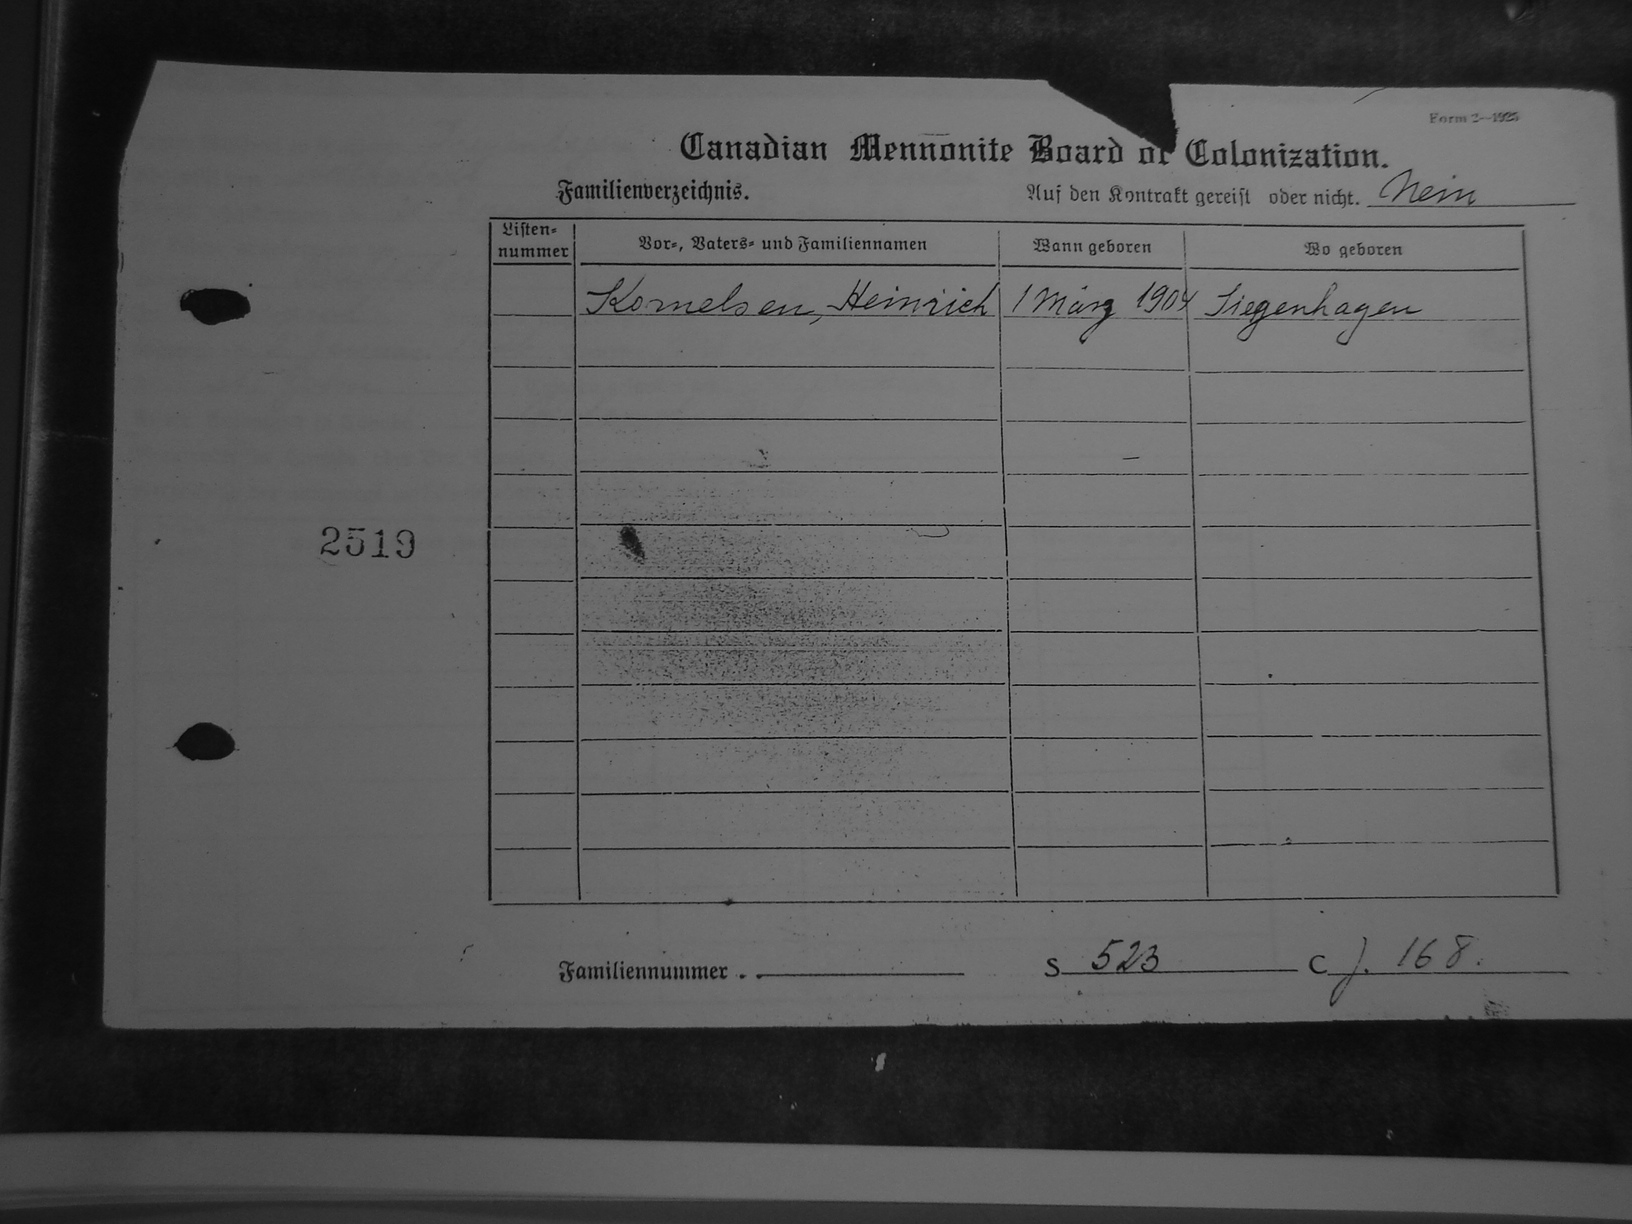 Form 2--1925
Canadian Mennonite Board of Colonization.
Familienverzeichnis.
Auf den Kontrakt gereist oder nicht. Nein
Listen-
nummer
Vor-, Vaters- und Familiennamen
Wann geboren
Wo geboren
Kornelsen, Heinrich 1 März 1904 Siegenhagen
2519
Familiennummer . . S 523 C J. 168.